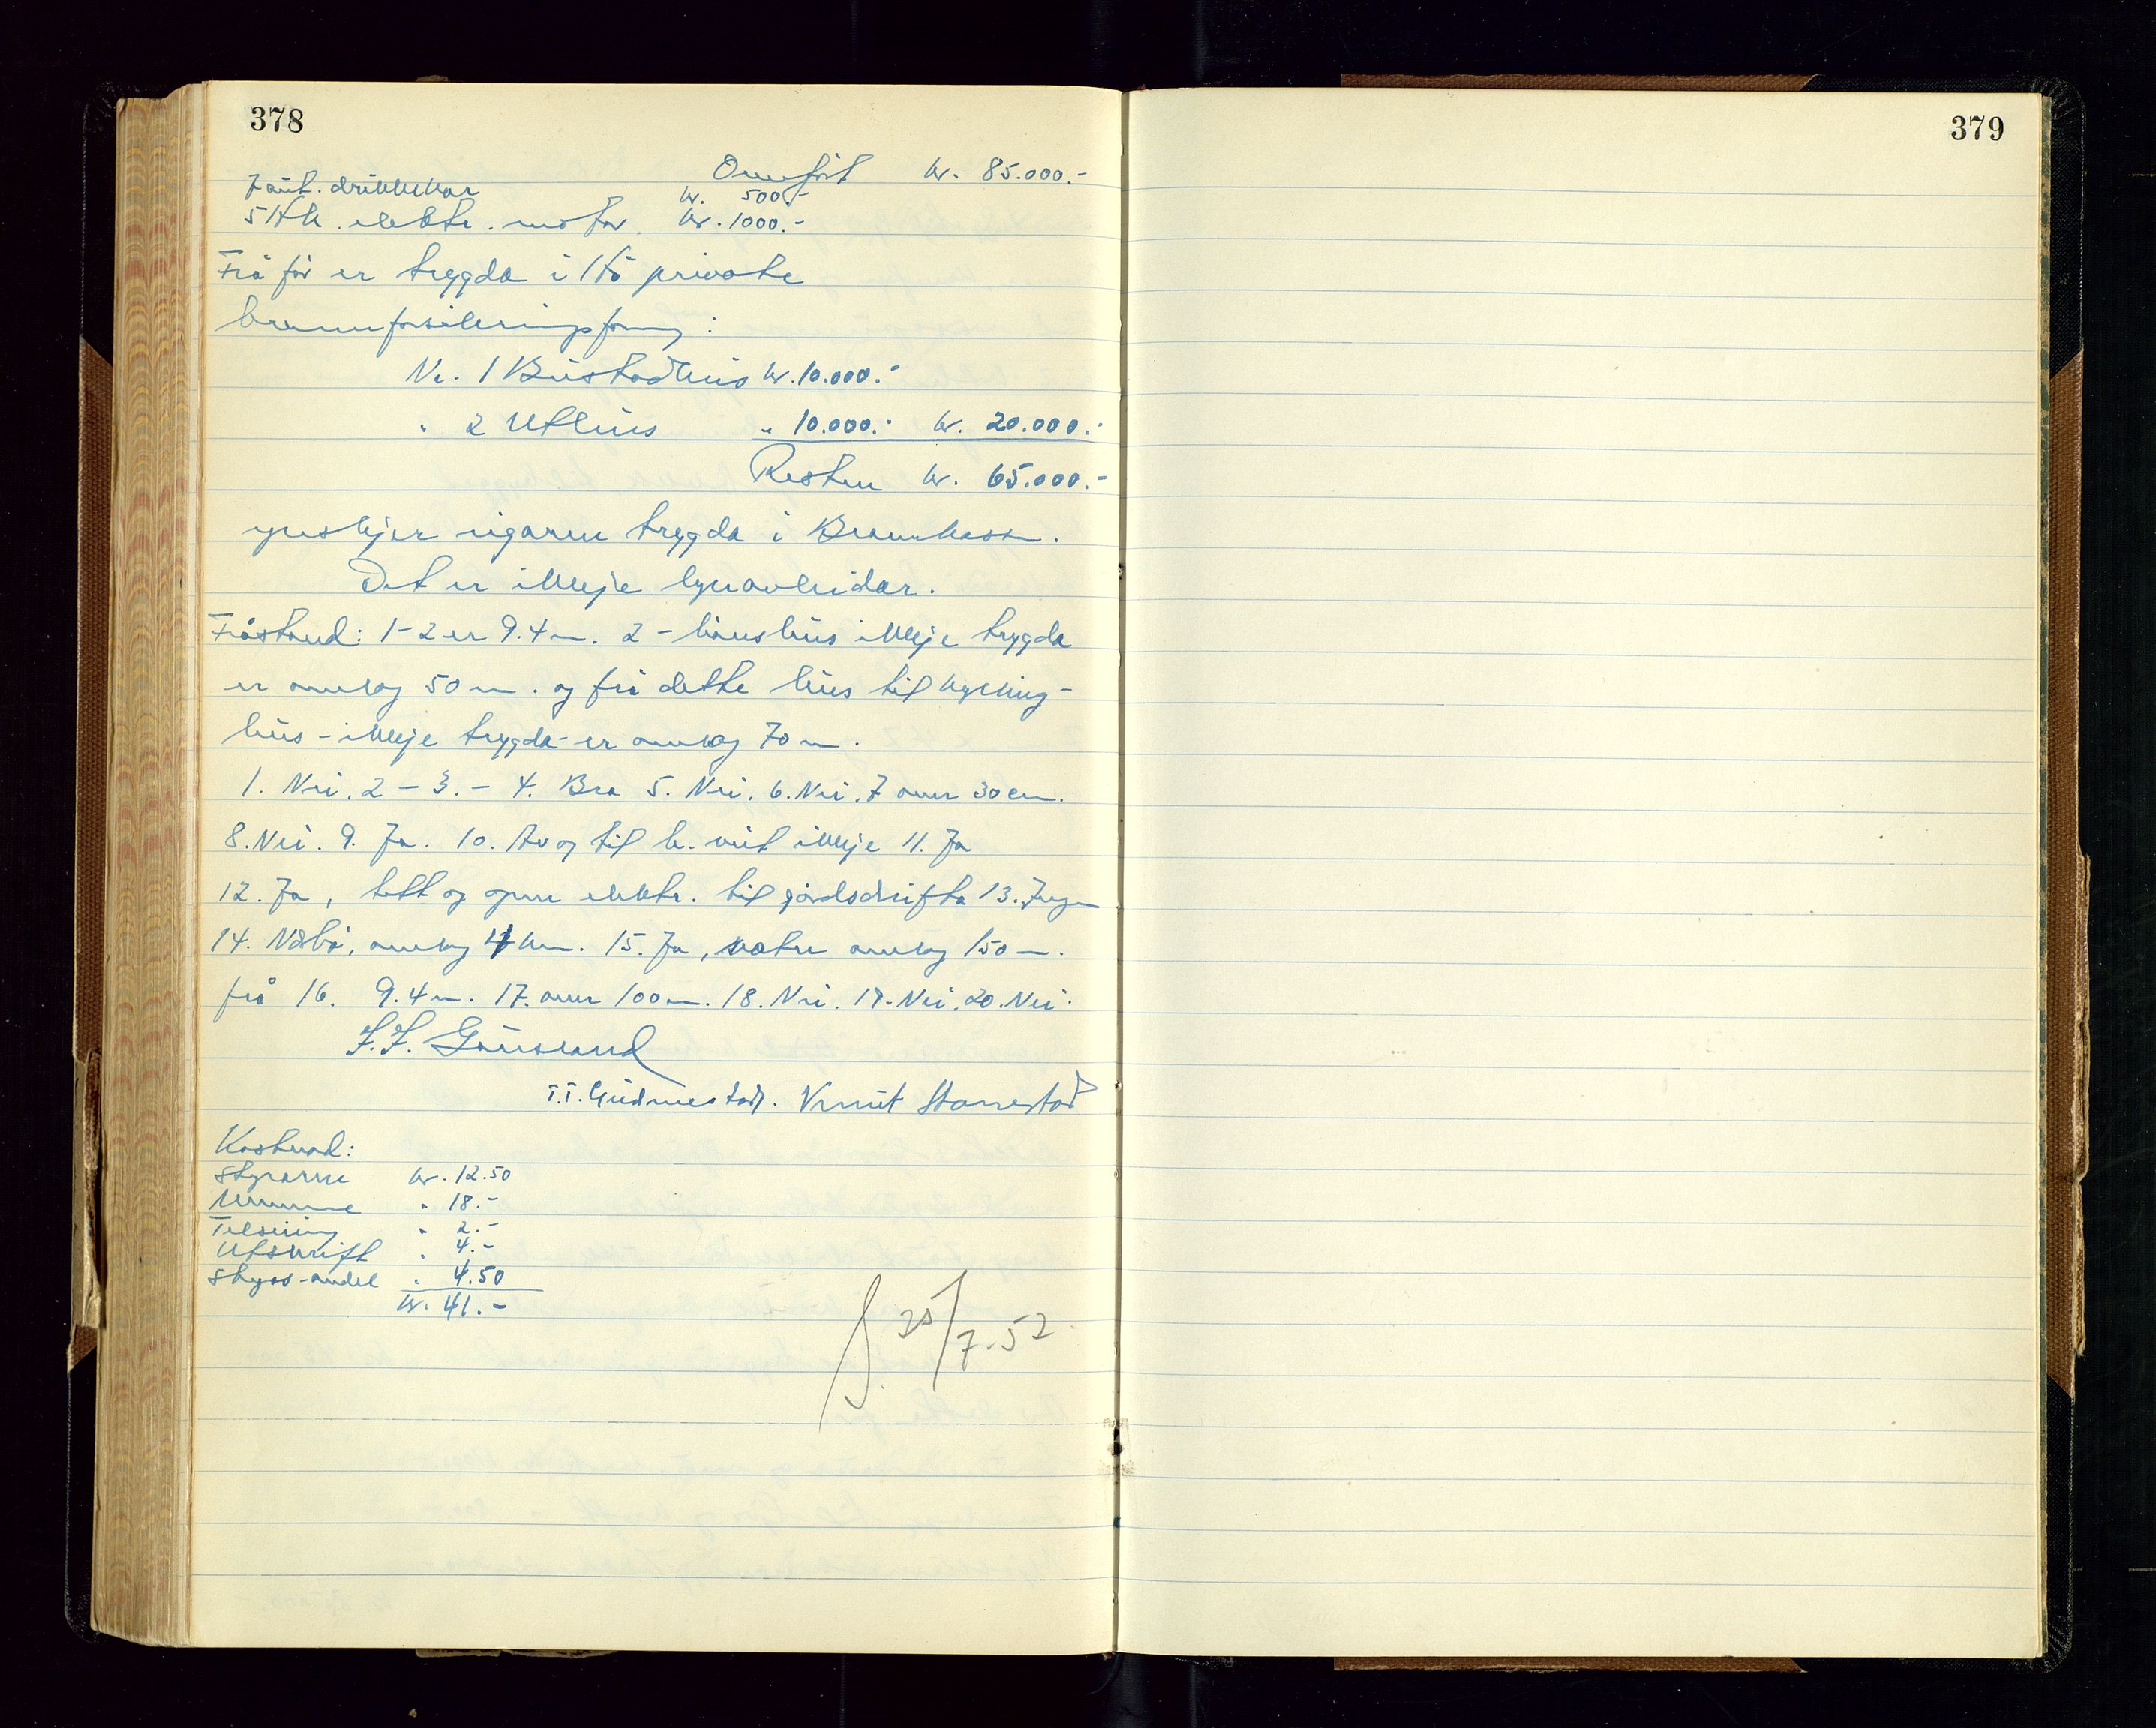 378
Omført kr. 85.000.-
7 aut. drikkekar kr. 500.-
5 Hk. elektr. motor kr. 1000.-
Frå før er trygda i Hå private
brannforsikringsforeng:
Nr. 1 Bustadhus kr. 10.000.-
" 2 Uthus " 10.000.- kr. 20.000.-
Resten kr. 65.000.-
ynskjer eigaren trygda i Brannkassa.
Det er ikkje lynavleidar.
Fråstand: 1-2 er 9.4 m. 2 - hønshus ikkje trygda
er omkog 50 m. og frå dette hus til kycling-
hus - ikkje trygda - er omkog 70 m.
1. Nei. 2 - 3. - 4. Bra 5. Nei. 6. Nei. 7 over 30 cm.
8. Nei. 9. Ja. 10. Av og til b. mit ikkje 11. Ja
12. Ja, tett og open elektr. til gardsdrifta 13. Ingen
14. Nærbø, omkog 4 km. 15. Ja, vatn omkog 150 m.
frå 16. 9.4 m. 17. over 100 m. 18. Nei. 19. Nei. 20. Nei.
J. J. Gausland
T. T. Gudmestad. Knut Stavnestad
Kostnad:
Styraren kr. 12.50
Mennene " 18.-
Telseiing " 2.-
Utskrift " 4.-
Skyss-andel " 4.50
kr. 41.-
25/7-52
379